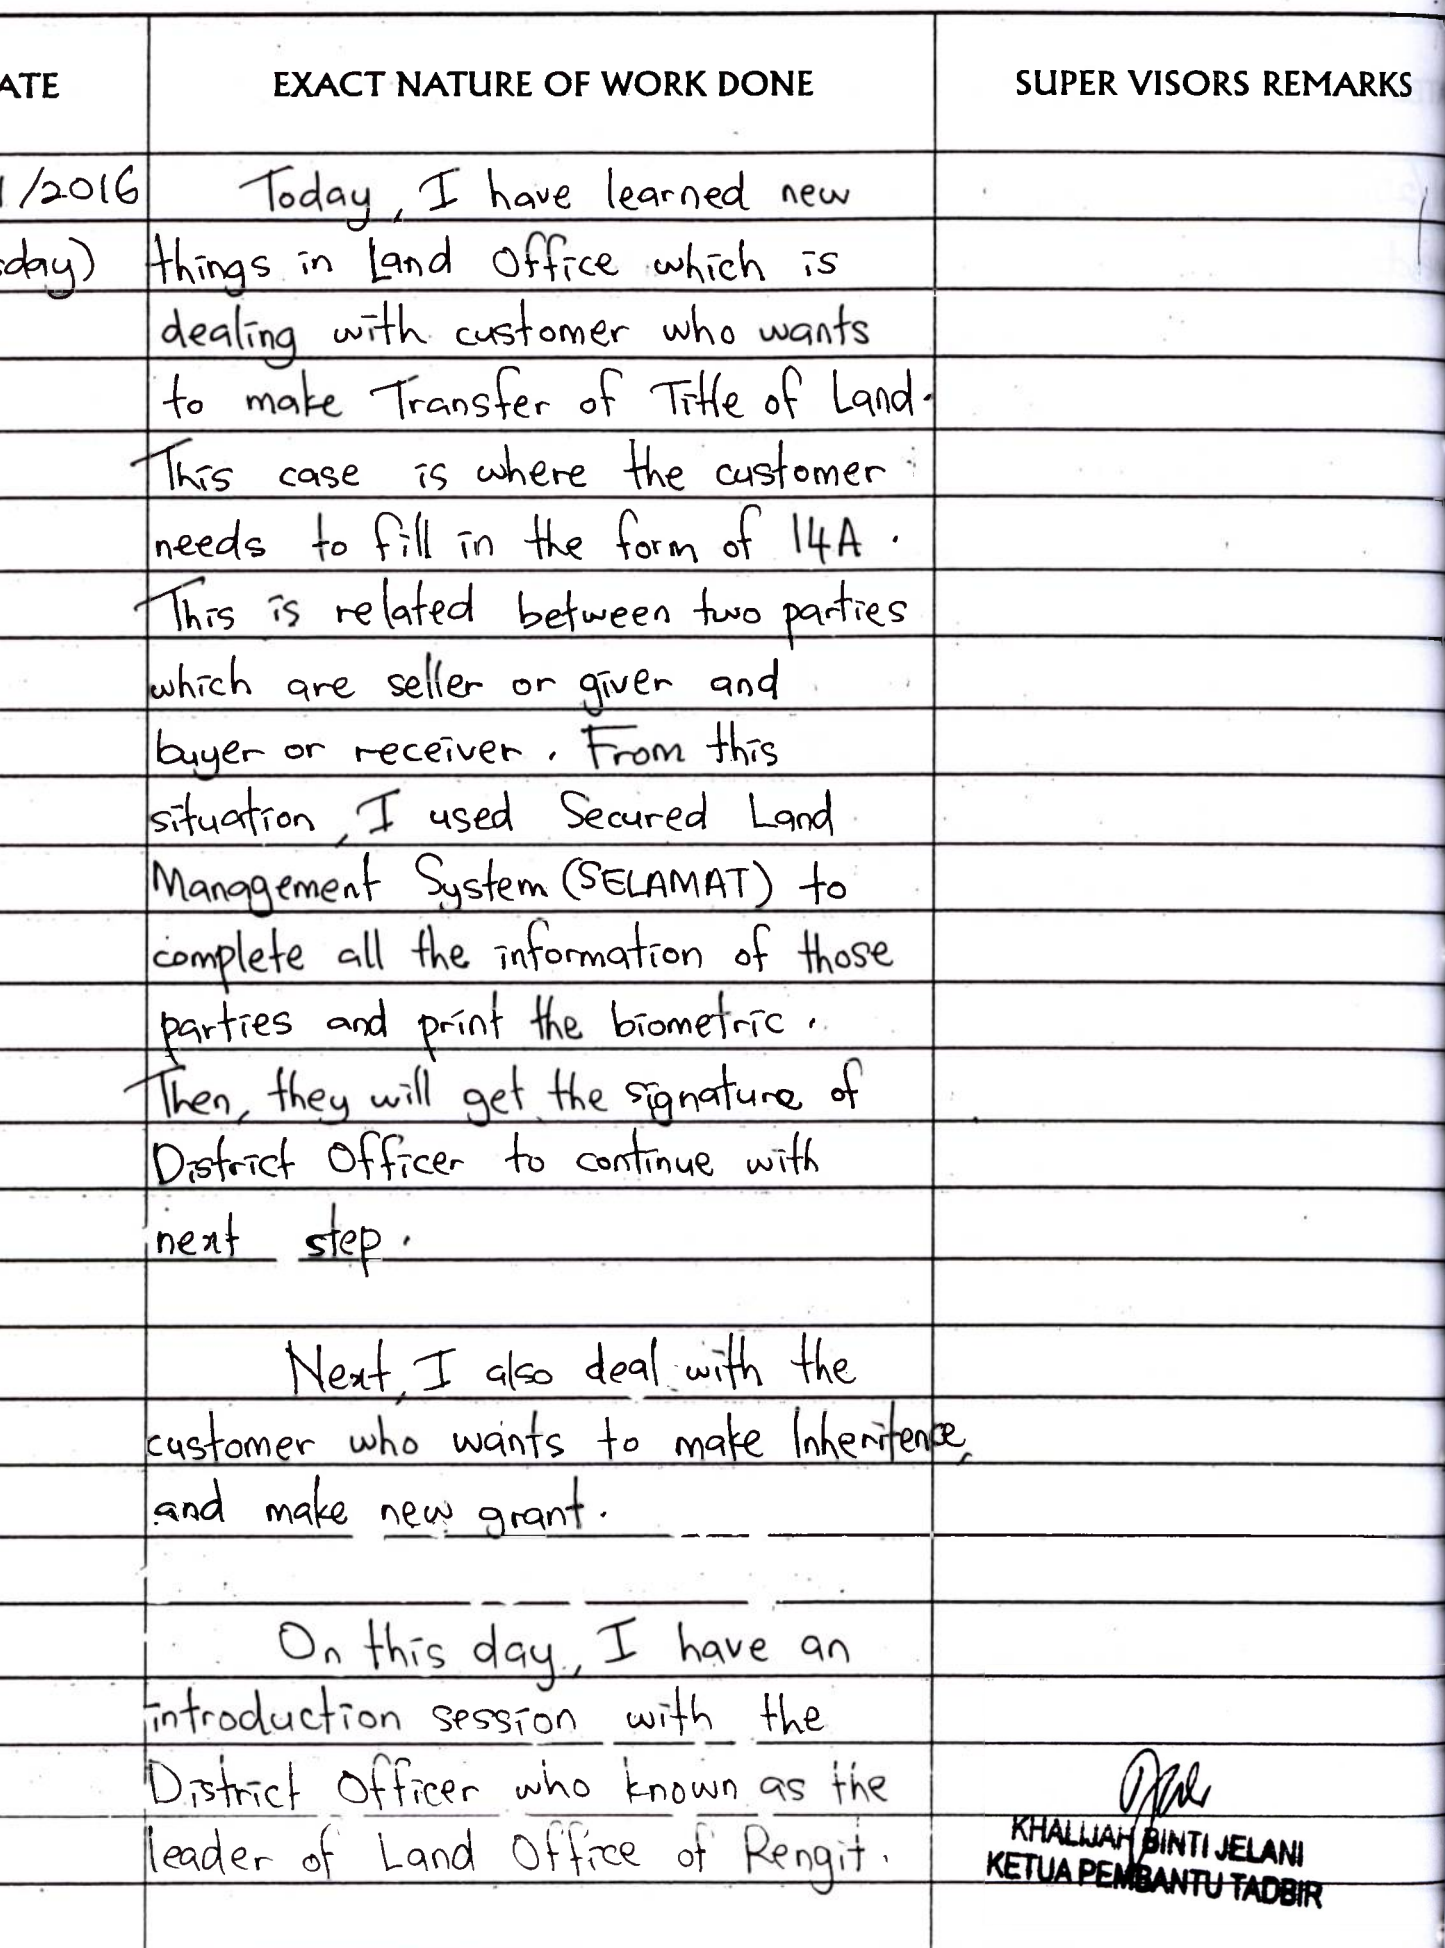 ATE EXACT NATURE OF WORK DONE SUPER VISORS REMARKS
1/2016 Today, I have learned new
sday) things in Land Office which is
dealing with customer who wants
to make Transfer of Title of Land.
This case is where the customer
needs to fill in the form of 14A.
This is related between two parties
which are seller or giver and
buyer or receiver. From this
situation, I used Secured Land
Management System (SELAMAT) to
complete all the information of those
parties and print the biometric.
Then, they will get the signature of
District Officer to continue with
next step.
Next, I also deal with the
customer who wants to make Inheritence,
and make new grant.
On this day, I have an
introduction session with the
District Officer who known as the
leader of Land Office of Rengit.
KHALIJAH BINTI JELANI
KETUA PEMBANTU TADBIR